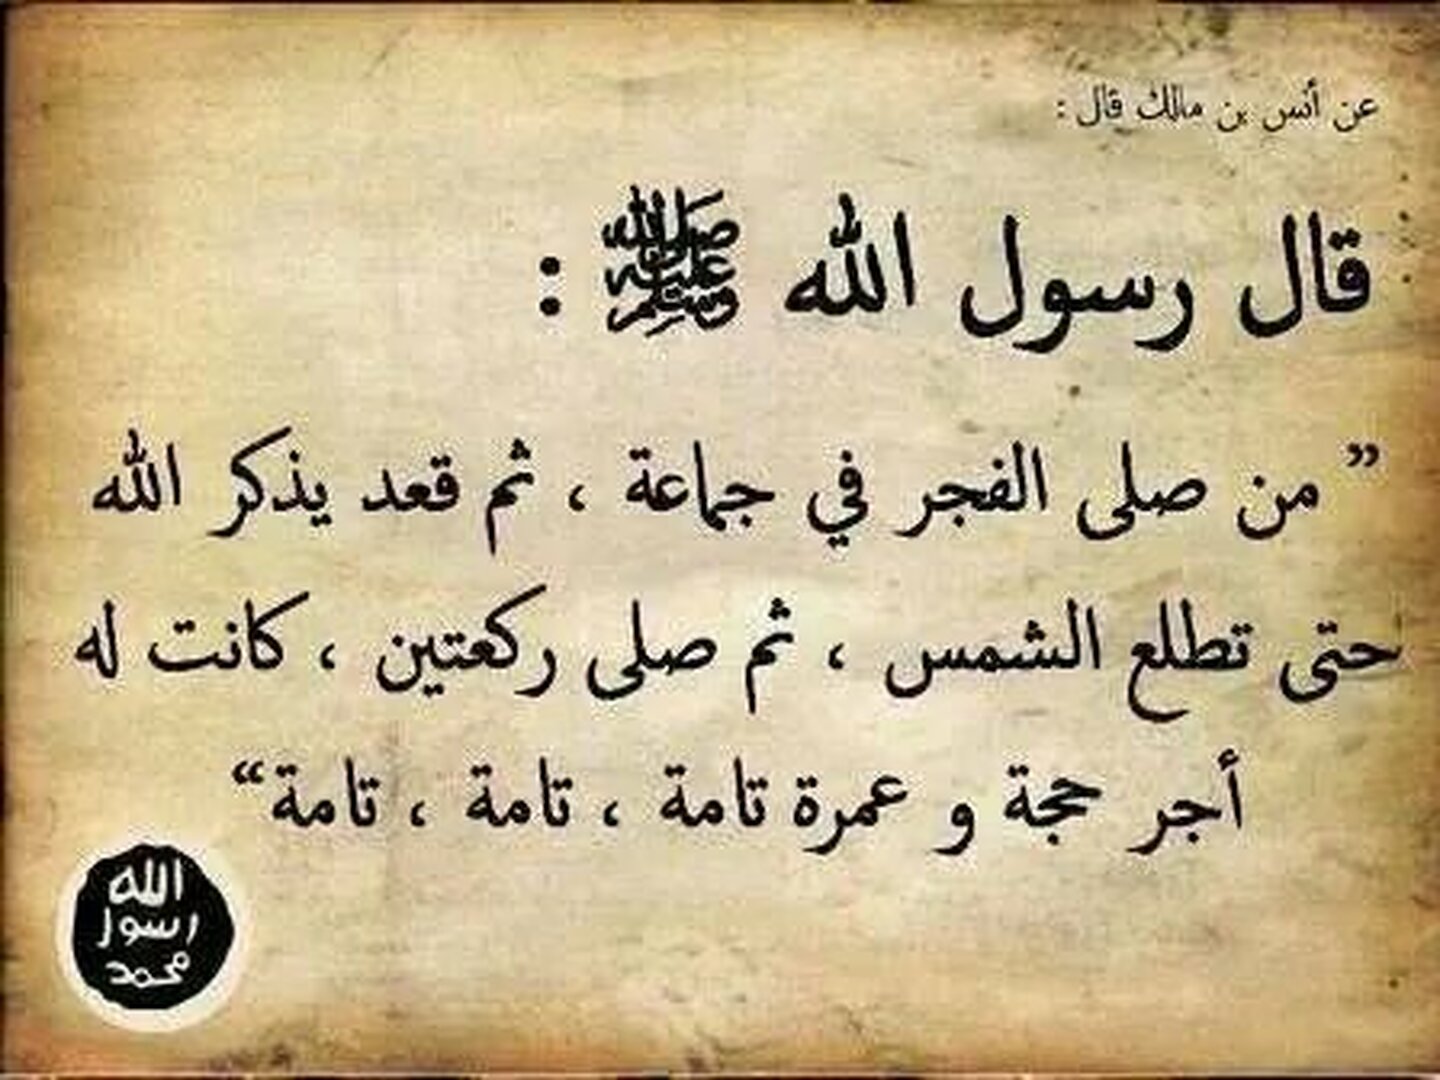 عن أنس بن مالك قال :
قال رسول الله ﷺ :
” من صلى الفجر في جماعة ، ثم قعد يذكر الله
حتى تطلع الشمس ، ثم صلى ركعتين ، كانت له
أجر حجة و عمرة تامة ، تامة ، تامة“
الله
رسول
محمد